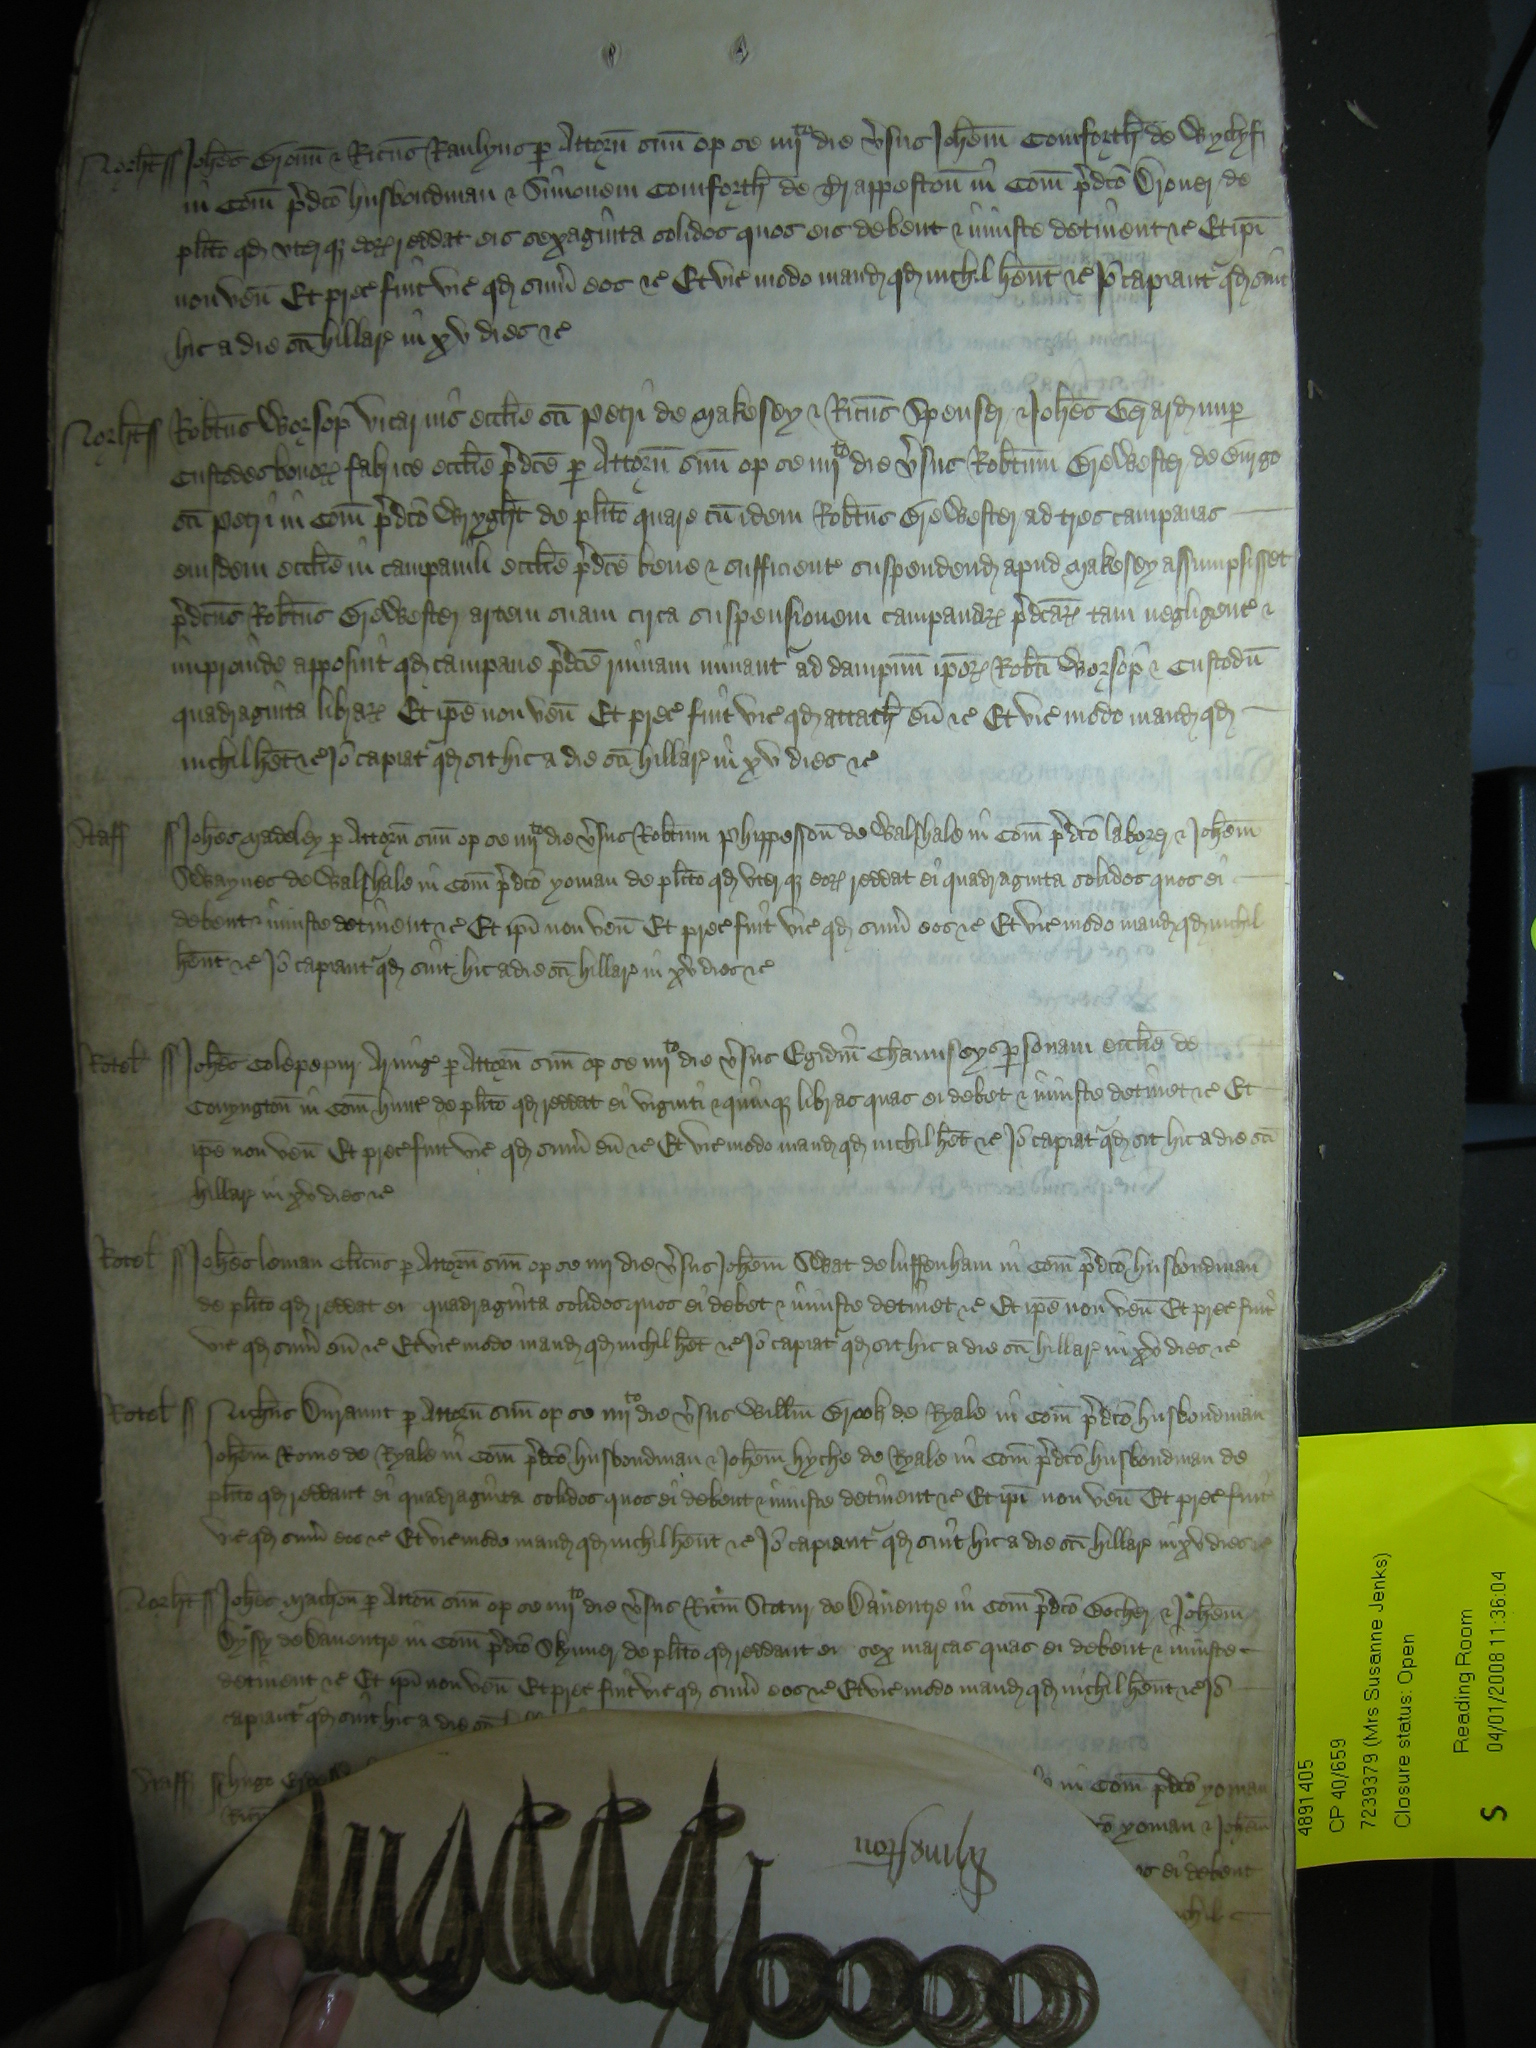 Norht ss Joh̄es Gromn̄ & Ric̄us Raulyns p Attorn̄ suu̅ op se iiijto die v̓sus Joh̄em Comforth de
in Com̄ p̓dc̄o husbondman & Simonem Comforth de Trappeston̄ in Com̄ p̓dc̄o Drover de
pl̄ito qd uterq eoꝝ reddat eis sexaginta solidos quos eis debent & iniuste detinent &c Et ip̄i
non ven̄ Et prec̓ fuit vic̓ qd sum̄ eos &c Et vic̓ modo mand̓ qd nichil hēnt &c Jō capiant̓ qd sint
hic a die sc̄i hillar̓ in xv dies &c
Norht ss Rob̄tus Worsop vicarius eccl̄ie sc̄i Petri de Makesey & Ric̄us Spenser & Joh̄es Gerard nup
Custodes bonoꝝ fabrice eccl̄ie p̓dc̄e p Attorn̄ suu̅ op se iiijto die v̓sus Rob̄tum Grewester de Burgo
sc̄i Petri in Com̄ p̓dc̄o Wryght de pl̄ito quare cu̅ idem Rob̄tus Grewester ad tres campanas
eiusdem eccl̄ie in campanili eccl̄ie p̓dc̄e bene & sufficient̓ suspendend̓ apud Makesey assumpsisset
p̓dc̄us Rob̄tus Grewester artem suam circa suspensionem campanaꝝ p̓dc̄aꝝ tam negligent̓ &
improvide apposuit qd campane p̓dc̄e ruinam minant̓ ad dampnu̅ ip̄oꝝ Rob̄ti Worsop & Custodu̅
quadraginta libraꝝ Et ip̄e non ven̄ Et prec̓ fuit vic̓ qd attach eu̅ &c Et vic̓ modo mand̓ qd
nichil hēt &c Jō capiat̓ qd sit hic a die sc̄i hillar̓ in xv dies &c
Staff ss Joh̄es Madeley p Attorn̄ suu̅ op se iiijto die v̓sus Rob̄tum Phippesson̄ de Walshale in Com̄ p̓dc̄o laborer & Joh̄em
Swaynes de Walshale in Com̄ p̓dc̄o yoman de pl̄ito qd uterq eoꝝ reddat ei quadraginta solidos quos ei
debent & iniuste detinent &c Et ip̄i non ven̄ Et prec̓ fuit vic̓ qd sum̄ eos &c Et vic̓ modo mand̓ qd nichil
hēnt &c Jō capiant̓ qd sint hic a die sc̄i hillar̓ in xv dies &c
Rotel ss Joh̄es Colepepir Armig̓ p Attorn̄ suu̅ op se iiijto die v̓sus Egidiu̅ personam eccl̄ie de
Conyngton̄ in Com̄ hunt̓ de pl̄ito qd reddat ei viginti & quinq libras quas ei debet & iniuste detinet &c Et
ip̄e non ven̄ Et prec̓ fuit vic̓ qd sum̄ eu̅ &c Et vic̓ modo mand̓ qd nichil hēt &c Jō capiat̓ qd sit hic a die sc̄i
hillar̓ in xv dies &c
Rotel ss Joh̄es leman Cl̄icus p Attorn̄ suu̅ op se iiij die v̓sus Joh̄em Swat de luffenham in Com̄ p̓dc̄o husbondman
de pl̄ito qd reddat ei quadraginta solidos quos ei debet & iniuste detinet &c Et ip̄e non ven̄ Et prec̓ fuit
vic̓ qd sum̄ eu̅ &c Et vic̓ modo mand̓ qd nichil hēt &c Jō capiat̓ qd sit hic a die sc̄i hillar̓ in xv dies &c
Rotel ss Nich̄us Duraunt p Attorn̄ suu̅ op se iiijto die v̓sus Will̄m Brook de Ryale in Com̄ p̓dc̄o husbondman
Joh̄em Rome de Ryale in Com̄ p̓dc̄o husbondman & Joh̄em hyche de Ryale in Com̄ p̓dc̄o husbondman de
pl̄ito qd reddant ei quadraginta solidos quos ei debent & iniuste detinent &c Et ip̄i non ven̄ Et prec̓ fuit
vic̓ qd sum̄ eos &c Et vic̓ modo mand̓ qd nichil hēnt &c Jō capiant̓ qd sint hic a die sc̄i hillar̓ in xv dies &c
Norht ss Joh̄es Machon̄ p Attorn̄ suu̅ op se iiijto die v̓sus Ric̄m de Daventre in Com̄ p̓dc̄o Bocher & Joh̄em
de Daventre in Com̄ p̓dc̄o Skynner de pl̄ito qd reddant ei sex marcas quas ei debent & iniuste
detinent &c Et ip̄i non ven̄ Et prec̓ fuit vic̓ qd sum̄ eos &c Et vic̓ modo mand̓ qd nichil hēnt &c Jō
capiant̓ qd sint hic a die sc̄i
Staff ss hugo in Com̄ p̓dc̄o yoman
yoman & Joh̄em
ei debent
Kyngeston
4891405
CP 40/659
7239379 (Mrs Susanne Jenks)
Closure status: Open
Reading Room
S 04/01/2008 11:36:04